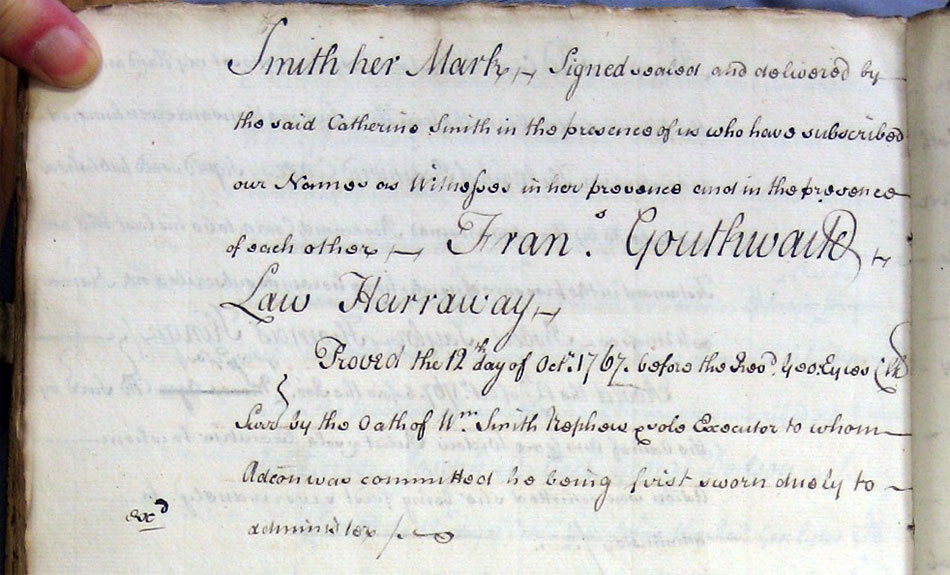 Smith her Mark Signed sealed and delivered by
the said Catherine Smith in the presence of us who have subscribed
our Names as Witnesses in her presence and in the presence
of each other Fran.s Gouthwaite
Law Harraway
Proved the 12th day of Octr. 1767. before the Revd. Geo: Eyres Clk
Surr by the Oath of Wm. Smith Nephew & sole Executor to whom
Adcõn was committed he being first sworn duely to
exd
administer